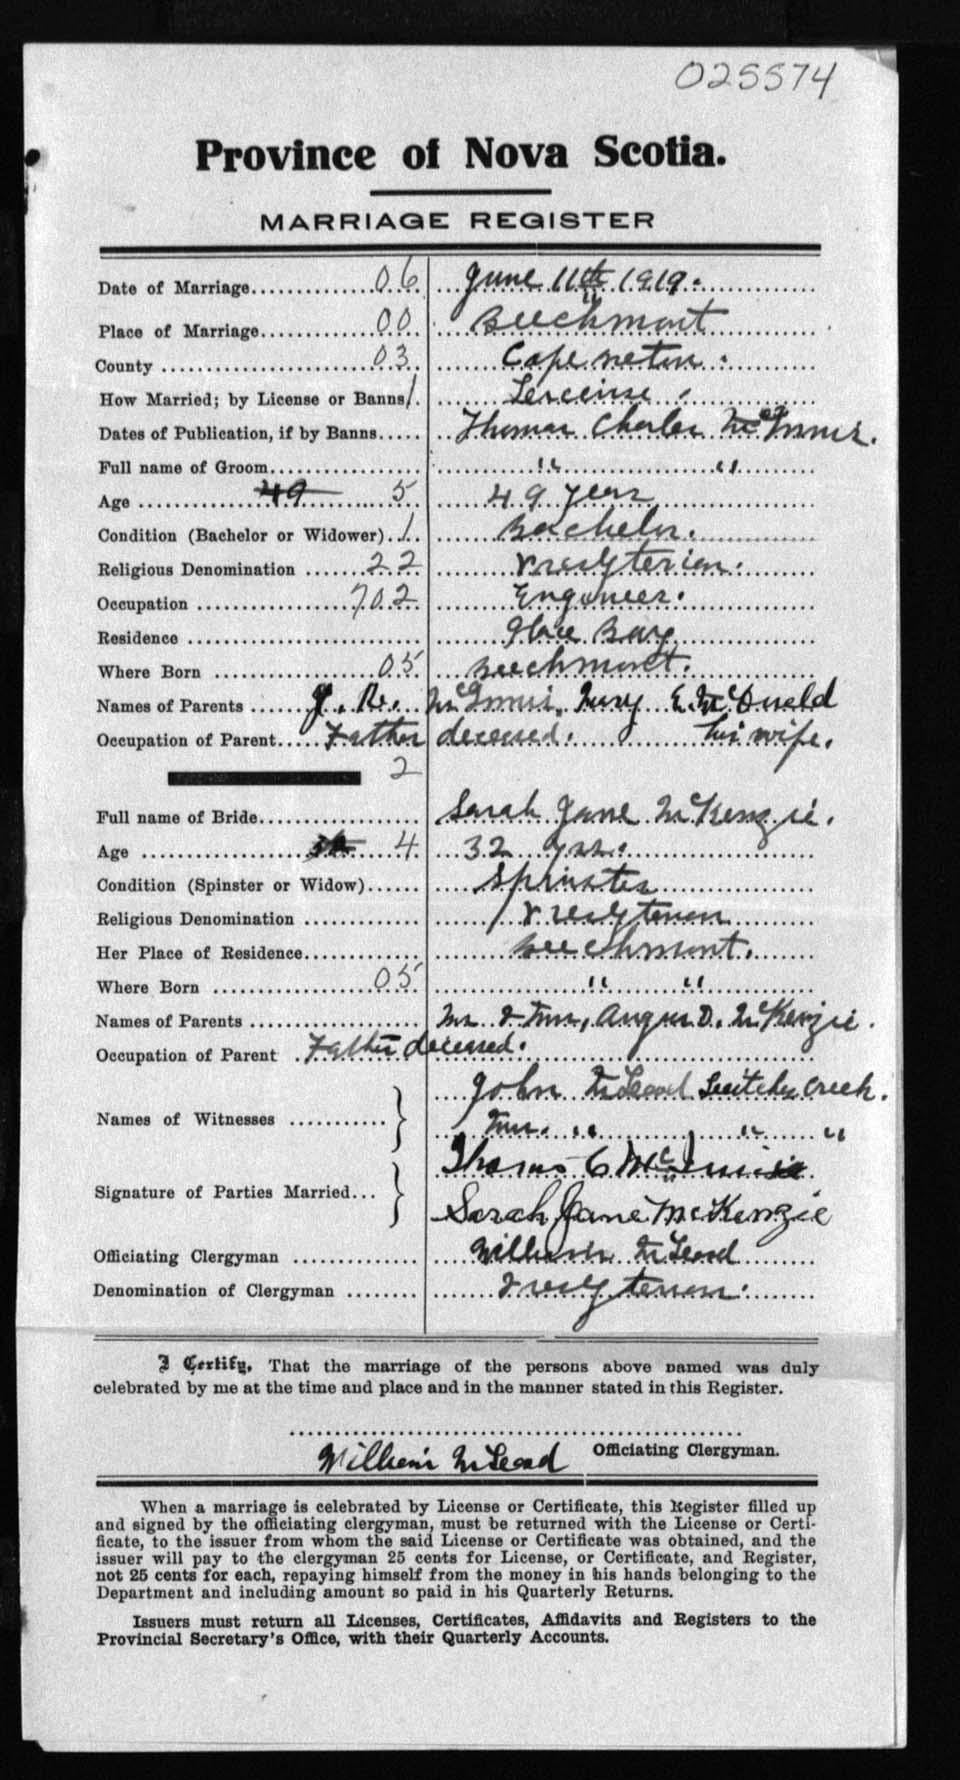 025574
Province of Nova Scotia.
MARRIAGE REGISTER
Date of Marriage 06 June 11th 1919.
Place of Marriage 00 Beechmont
County 03 Cape Breton.
How Married; by License or Banns 1. License.
Dates of Publication, if by Banns Thomas Charles McInnis.
Full name of Groom " "
Age 49 5 49 years
Condition (Bachelor or Widower) 1. Bachelor.
Religious Denomination 22 Presbyterian.
Occupation 702 Engineer.
Residence Glace Bay
Where Born 05 Beechmont.
Names of Parents J. McInnis, Mary E. McDonald
Occupation of Parent Father deceased. his wife.
2
Full name of Bride Sarah Jane McKenzie.
Age 4 32 yrs.
Condition (Spinster or Widow) Spinster
Religious Denomination Presbyterian
Her Place of Residence Beechmont.
Where Born 05 " "
Names of Parents Mr & Mrs, Angus D. McKenzie.
Occupation of Parent Father deceased.
John McLeod Leitches Creek.
Names of Witnesses
Mrs. " " "
Thomas C McInnis
Signature of Parties Married
Sarah Jane McKenzie
Officiating Clergyman William McLeod
Denomination of Clergyman Presbyterian.
I Certify, That the marriage of the persons above named was duly
celebrated by me at the time and place and in the manner stated in this Register.
William McLeod Officiating Clergyman.
When a marriage is celebrated by License or Certificate, this Register filled up
and signed by the officiating clergyman, must be returned with the License or Certi-
ficate, to the issuer from whom the said License or Certificate was obtained, and the
issuer will pay to the clergyman 25 cents for License, or Certificate, and Register,
not 25 cents for each, repaying himself from the money in his hands belonging to the
Department and including amount so paid in his Quarterly Returns.
Issuers must return all Licenses, Certificates, Affidavits and Registers to the
Provincial Secretary's Office, with their Quarterly Accounts.